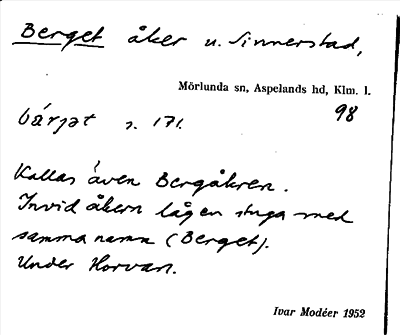 Berget åker u. Sinnerstad,
Mörlunda sn, Aspelands hd, Klm. l.
98
bárjət s. 171.
Kallas även Bergåkren.
Invid åkern låg en stuga med
samma namn (Berget).
Under Horvan.
Ivar Modéer 1952